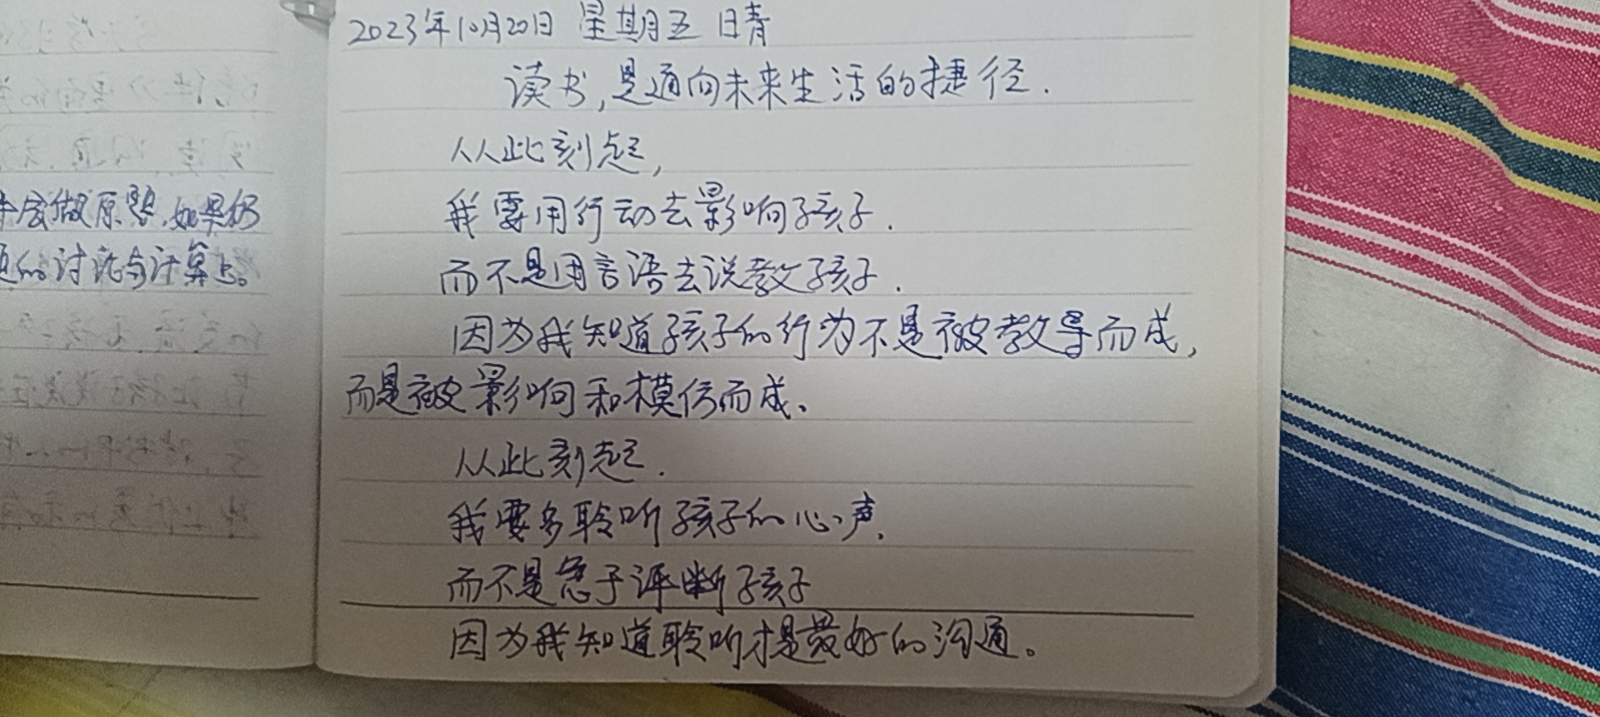 2023年10月20日 星期五 晴
读书,是通向未来生活的捷径.
从此刻起,
我要用行动去影响孩子.
而不是用言语去说教孩子.
因为我知道孩子的行为不是被教导而成,
而是被影响和模仿而成、
从此刻起.
我要多聆听孩子的心声.
而不是急于评断孩子
因为我知道聆听才是最好的沟通。
做原题,如果仍
的讨论与计算上。